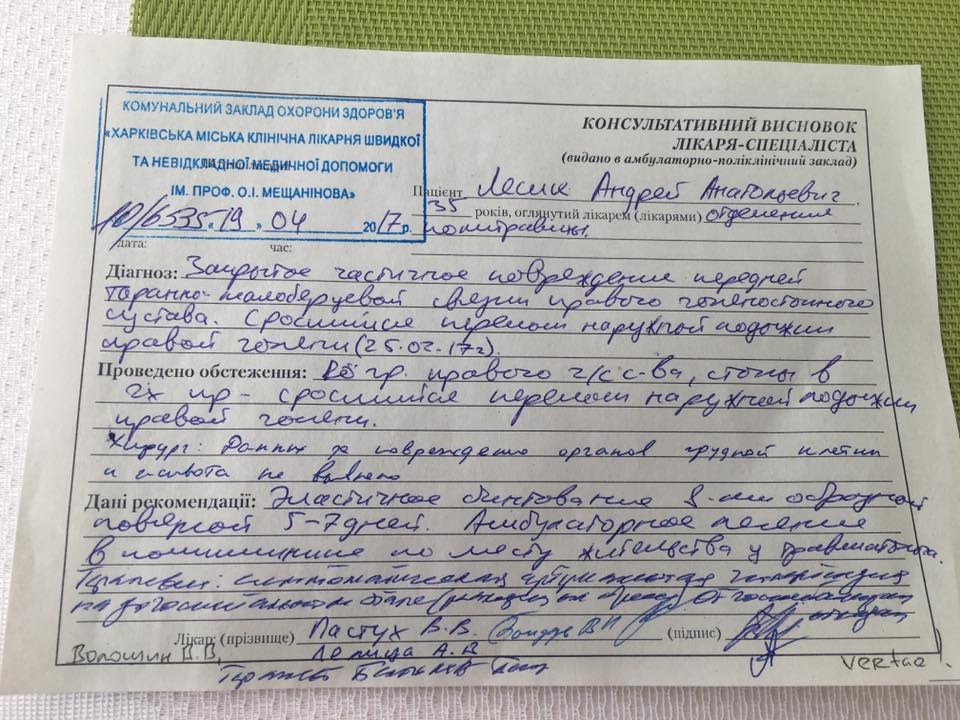 КОМУНАЛЬНИЙ ЗАКЛАД ОХОРОНИ ЗДОРОВ'Я
«ХАРКІВСЬКА МІСЬКА КЛІНІЧНА ЛІКАРНЯ ШВИДКОЇ
ТА НЕВІДКЛАДНОЇ МЕДИЧНОЇ ДОПОМОГИ
ІМ. ПРОФ. О.І. МЕЩАНІНОВА»
10/6535 «19» 04 2017 р.
дата: час:
КОНСУЛЬТАТИВНИЙ ВИСНОВОК
ЛІКАРЯ-СПЕЦІАЛІСТА
(видано в амбулаторно-поліклінічний заклад)
Пацієнт Лесик Андрей Анатольевич
35 років, оглянутий лікарем (лікарями) отделения
политравмы.
Діагноз: Закрытое частичное повреждение передней
таранно-малоберцовой связки правого голеностопного
сустава. Сросшийся перелом наружной лодыжки
правой голени (25.02.17г).
Проведено обстеження: гр. правого г/с с-ва, стопы в
2х пр - сросшийся перелом наружной лодыжки
правой голени.
Хирург: Данных за повреждение органов грудной клетки
и живота не выявлено
Дані рекомендації: Эластичное бинтование 8-ми образной
повязкой 5-7 дней. Амбулаторное лечение
в поликлинике по месту жительства у травматолога.
на
Лікар: (прізвище) Пастух В.В. (підпис)
Волошин В.В.
А.В
vertae